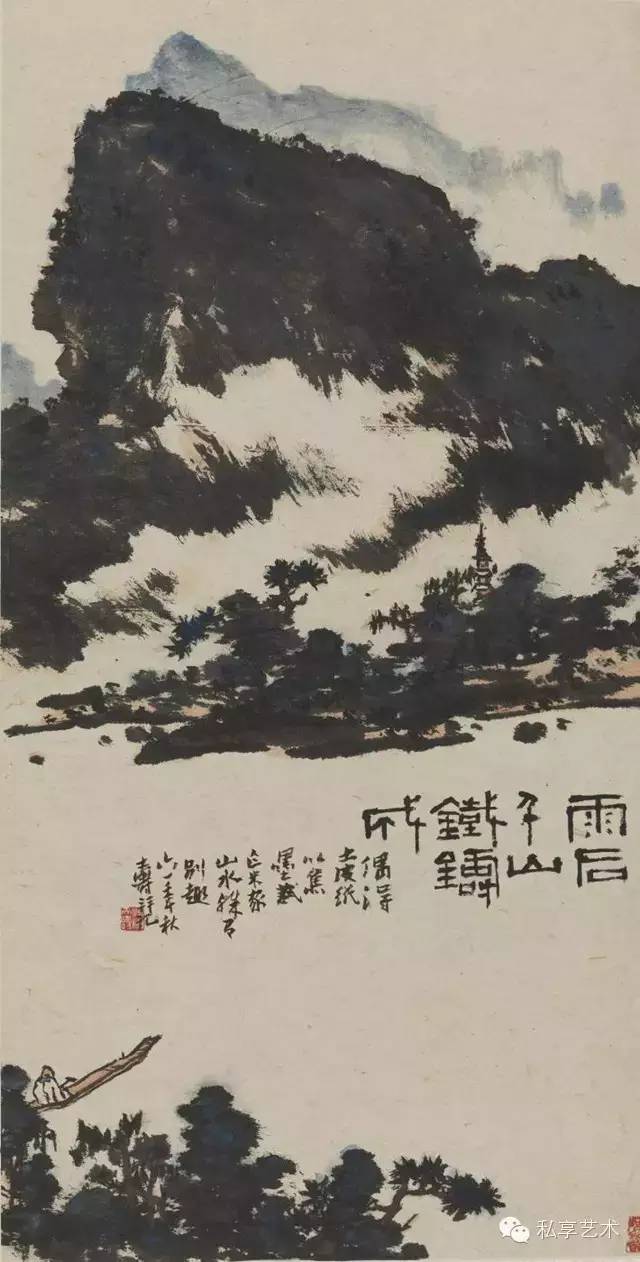 雨后
千山
鐵鑄
成
偶得
土皮紙
以焦
墨
米家
山水殊有
別趣
六一年秋
壽并記
私享艺术